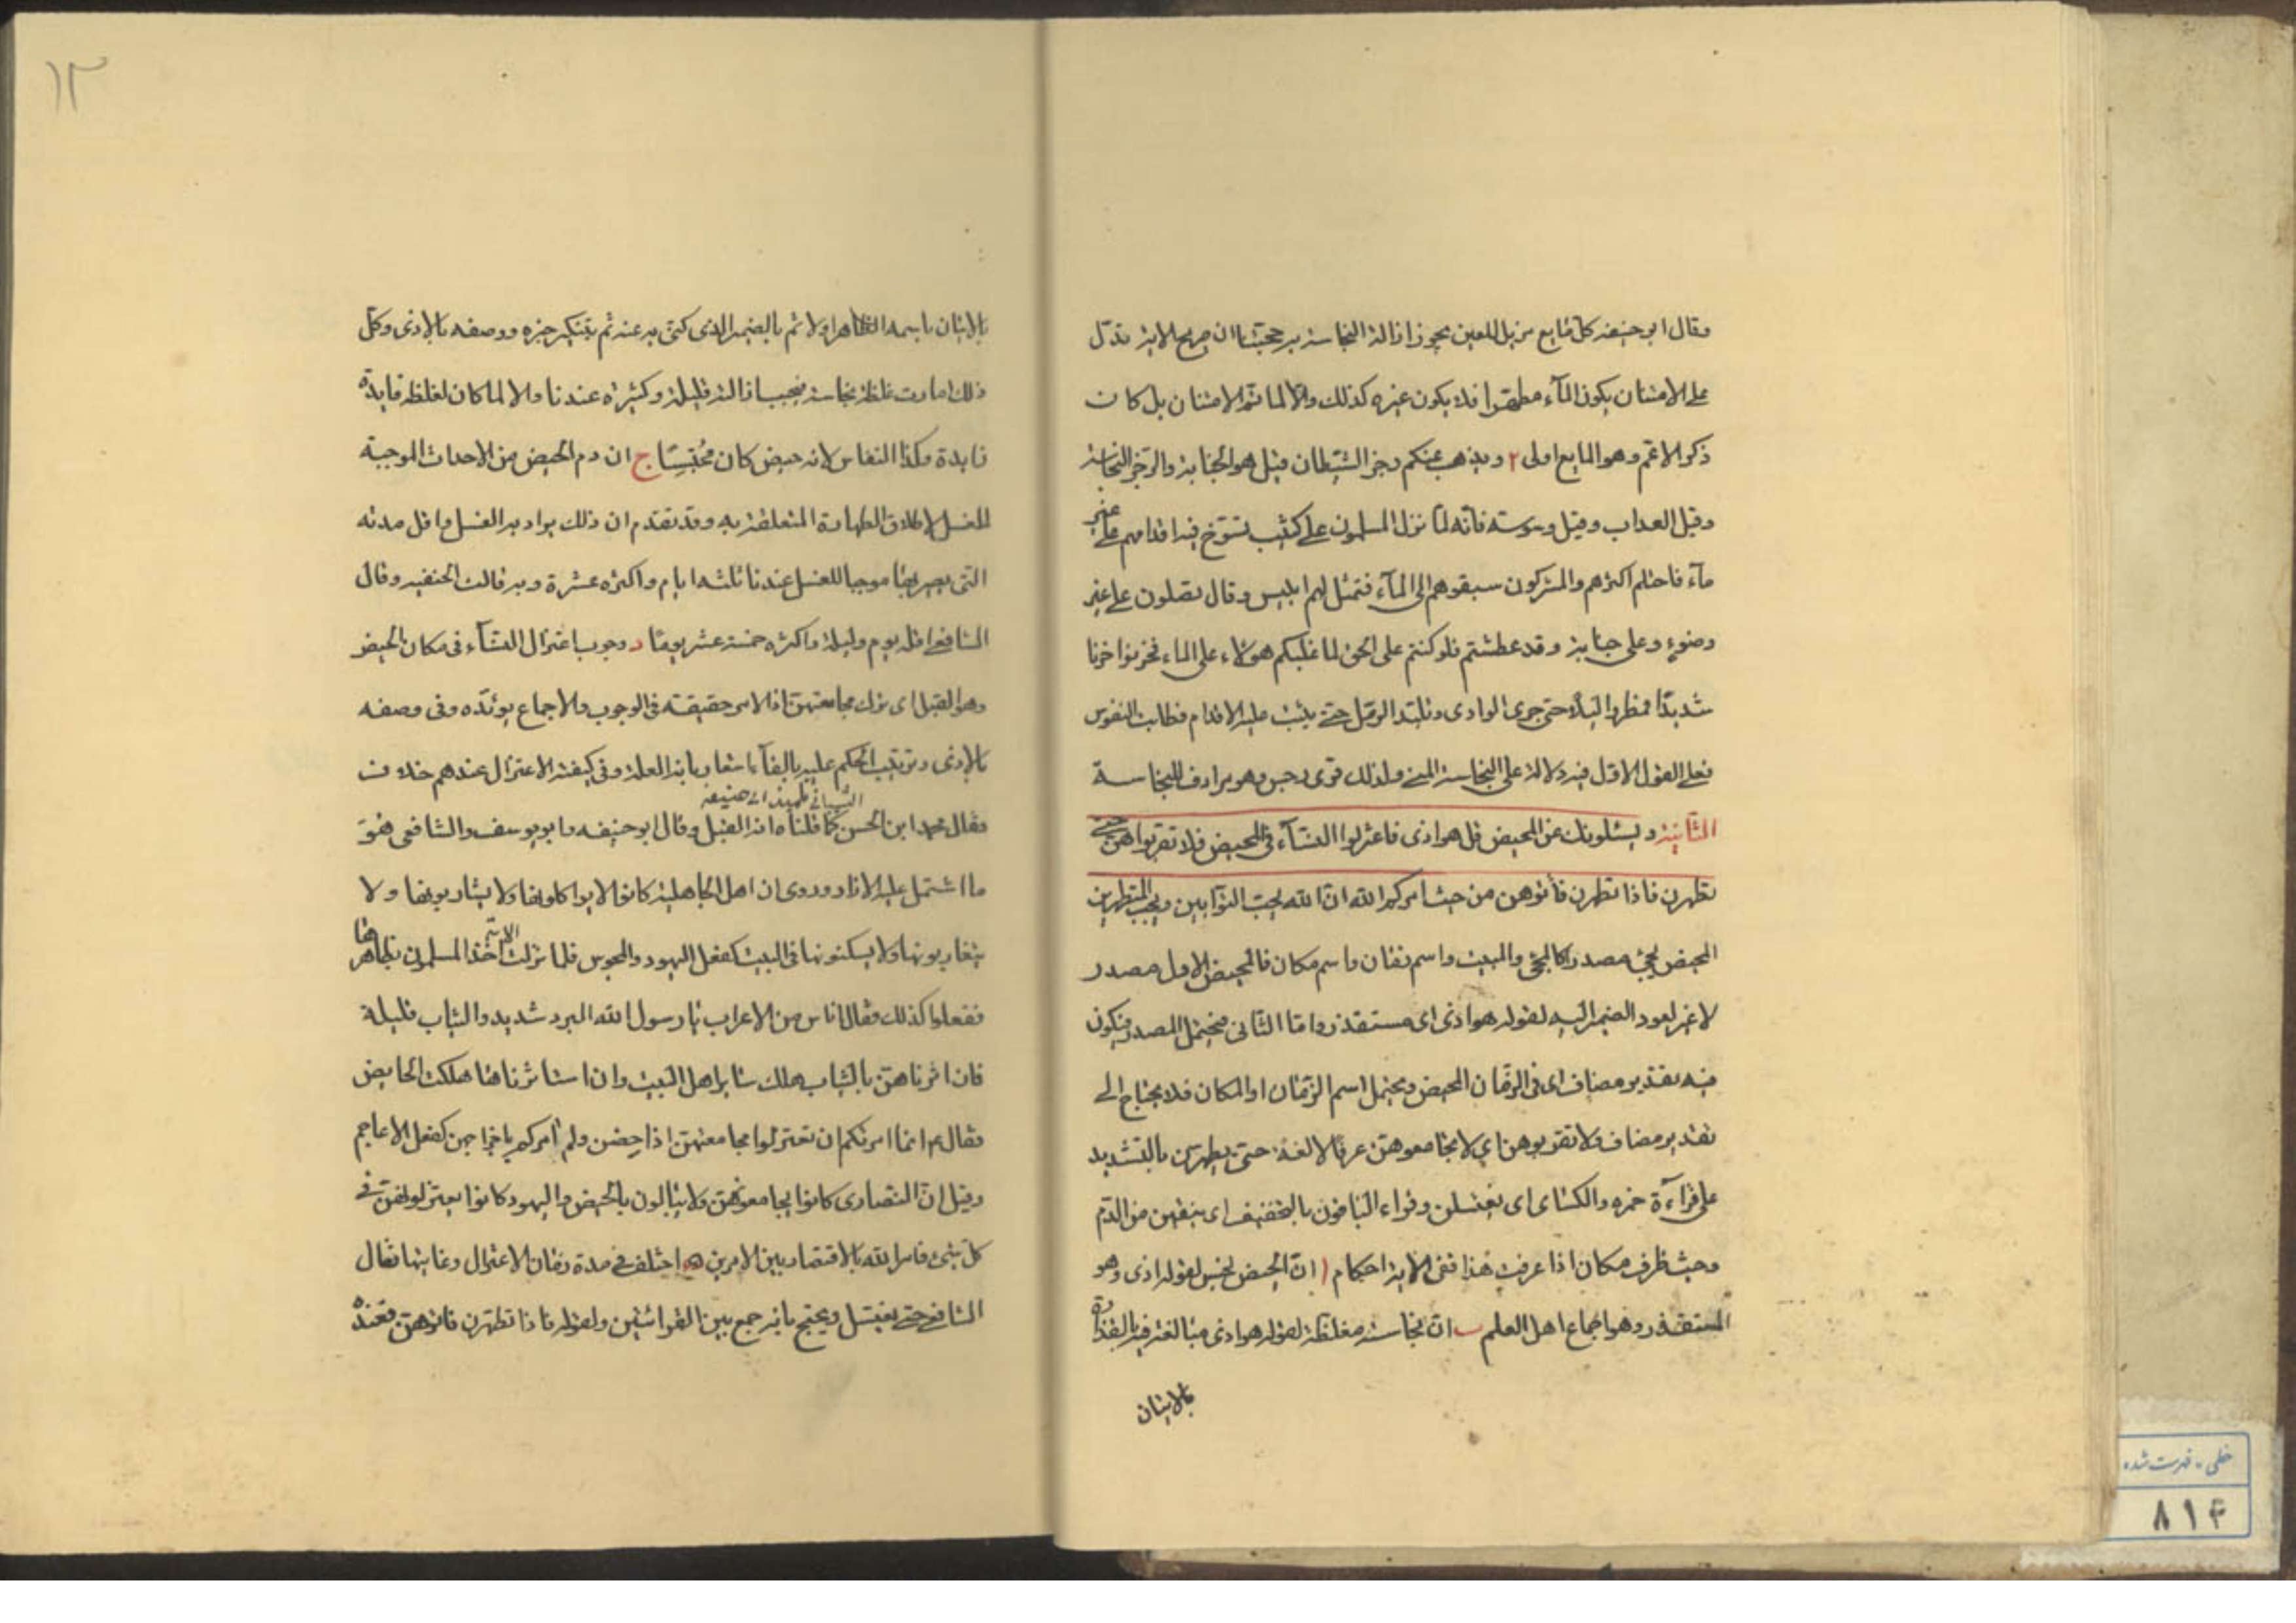 وقال ابو حنيفه كل مايع مزيل للعين يجوز ازالة النجاسة به حجتنا ان صريح الاية تدل
على الامتنان بكون المآء مطهّرا فلا يكون غيره كذلك والّا لما تمّ الامتنان بل كان
ذكر الاعم وهو المايع اولى ٢ ويذهب عنكم رجز الشيطان قيل هو الجنابة والرّجز النجاسة
وقيل العذاب وقيل وسوسته فانّه لمّا نزل المسلمون على كثيب تسوّخ فيه اقدامهم على غير
مآء فاحتلم اكثرهم والمشركون سبقوهم الى المآء فتمثل لهم ابليس وقال تصلون على غير
وضوءٍ وعلى جنابة وقد عطشتم فلو كنتم على الحق لما غلبكم هؤلاء على الماء فحزنوا حزنا
شديدًا فمطروا ليلا حتى جرى الوادى وتلبّد الرمل حتى يثبت عليه الاقدام فطابت النفوس
فعلى القول الاوّل فيه دلالة على النجاسة المنى ولذلك قرى رجس وهو مرادف للنجاسة
الثّانية ويسئلونك عن المحيض قل هو اذى فاعتزلوا النسآء فى المحيض فلا تقربوا هنّ حتى
تطهرن فاذا تطهرن فأتوهن من حيث امركم الله انّ الله يحبّ التوّابين ويحبّ المتطهرين
المحيض يجئ مصدرا كالمجئ والمبيت واسم زمان واسم مكان فالمحيض الاول مصدر
لا غير لعود الضمير اليه لقوله هو اذى اى مستقذر وامّا الثانى فيحتمل المصدر فيكون
فيه تقدير مضاف اى فى الزمان المحيض ويحتمل اسم الزمان او المكان فلا يحتاج الى
تقدير مضاف ولا تقربوهن اي لا تجامعوهنّ عرفا لا لغة حتى يطهرن بالتشديد
على قرآءة حمزه والكسائى اى يغتسلن وقراء الباقون بالتخفيف اى ينقين من الدّم
وحيث ظرف مكان اذا عرفت هذا ففى الاية احكام ا انّ الحيض نجس لقوله اذى وهو
المستقذر وهو اجماع اهل العلم ب انّ نجاسته مغلّظة لقوله هو اذى مبالغة فيه القذارة
بالاتيان
١٣
بالاتيان باسمه الظاهر اولا ثم بالضمير الذى كنى به عنه ثم بتنكير خبره ووصفه بالاذى وكلّ
ذلك امارت غلظة نجاسته فيجب ازالة قليله وكثيره عندنا والا لما كان لغلظه فايدة
فايدة وكذا النفاس لانه حيض كان محتبسًا ج ان دم الحيض من الاحداث الموجبة
للغسل لاطلاق الطهارة المتعلقة به وقد تقدم ان ذلك يراد به الغسل واقل مدته
التى يصير بها موجبا للغسل عندنا ثلثه ايام واكثره عشرة وبه قالت الحنفيه وقال
الشافعى اقله يوم وليلة واكثره خمسة عشر يومًا د وجوب اعتزال النسآء فى مكان الحيض
وهو القبل اى ترك مجامعتهن اذ الامر حقيقته فى الوجوب والاجماع يوئده وفى وصفه
بالاذى وترتيب الحكم عليه بالفآء اشعار بانه العلة وفى كيفية الاعتزال عندهم خلاف
الشيبانى تلميذ ابى حنيفه
فقال محمد ابن الحسن كما قلناه انه القبل وقال ابو حنيفه وابو يوسف والشافعى هو
ما اشتمل عليه الازار وروى ان اهل الجاهلية كانوا لا يواكلونها ولا يشاربونها ولا
يتقاربونها ولا يسكنونها فى البيت كفعل اليهود والمجوس فلما نزلت الاية اخذ المسلمون بظاهرها
ففعلوا كذلك فقال اناس من الاعراب يا رسول الله البرد شديد والثياب قليلة
فان اثرناهنّ بالثياب هلك ساير اهل البيت وان استاثرنا هنا هلكت الحايض
فقال ع انما امرتكم ان تعتزلوا مجامعتهنّ اذا حِضن ولم آمركم باخراجهن كفعل الاعاجم
وقيل انّ النصارى كانوا يجامعونهن ولا يبالون بالحيض واليهود كانوا يعتزلونهن فى
كل شئ فامر الله بالاقتصار بين الامرين ه اختلف فى مدة زمان الاعتزال وغايتها فقال
الشافعى حتى يغتسل ويحتج بانه جمع بين القرائتين ولقوله فاذا تطهّرن فاتوهنّ وعنده
خطى، فهرست شده
٨١٤